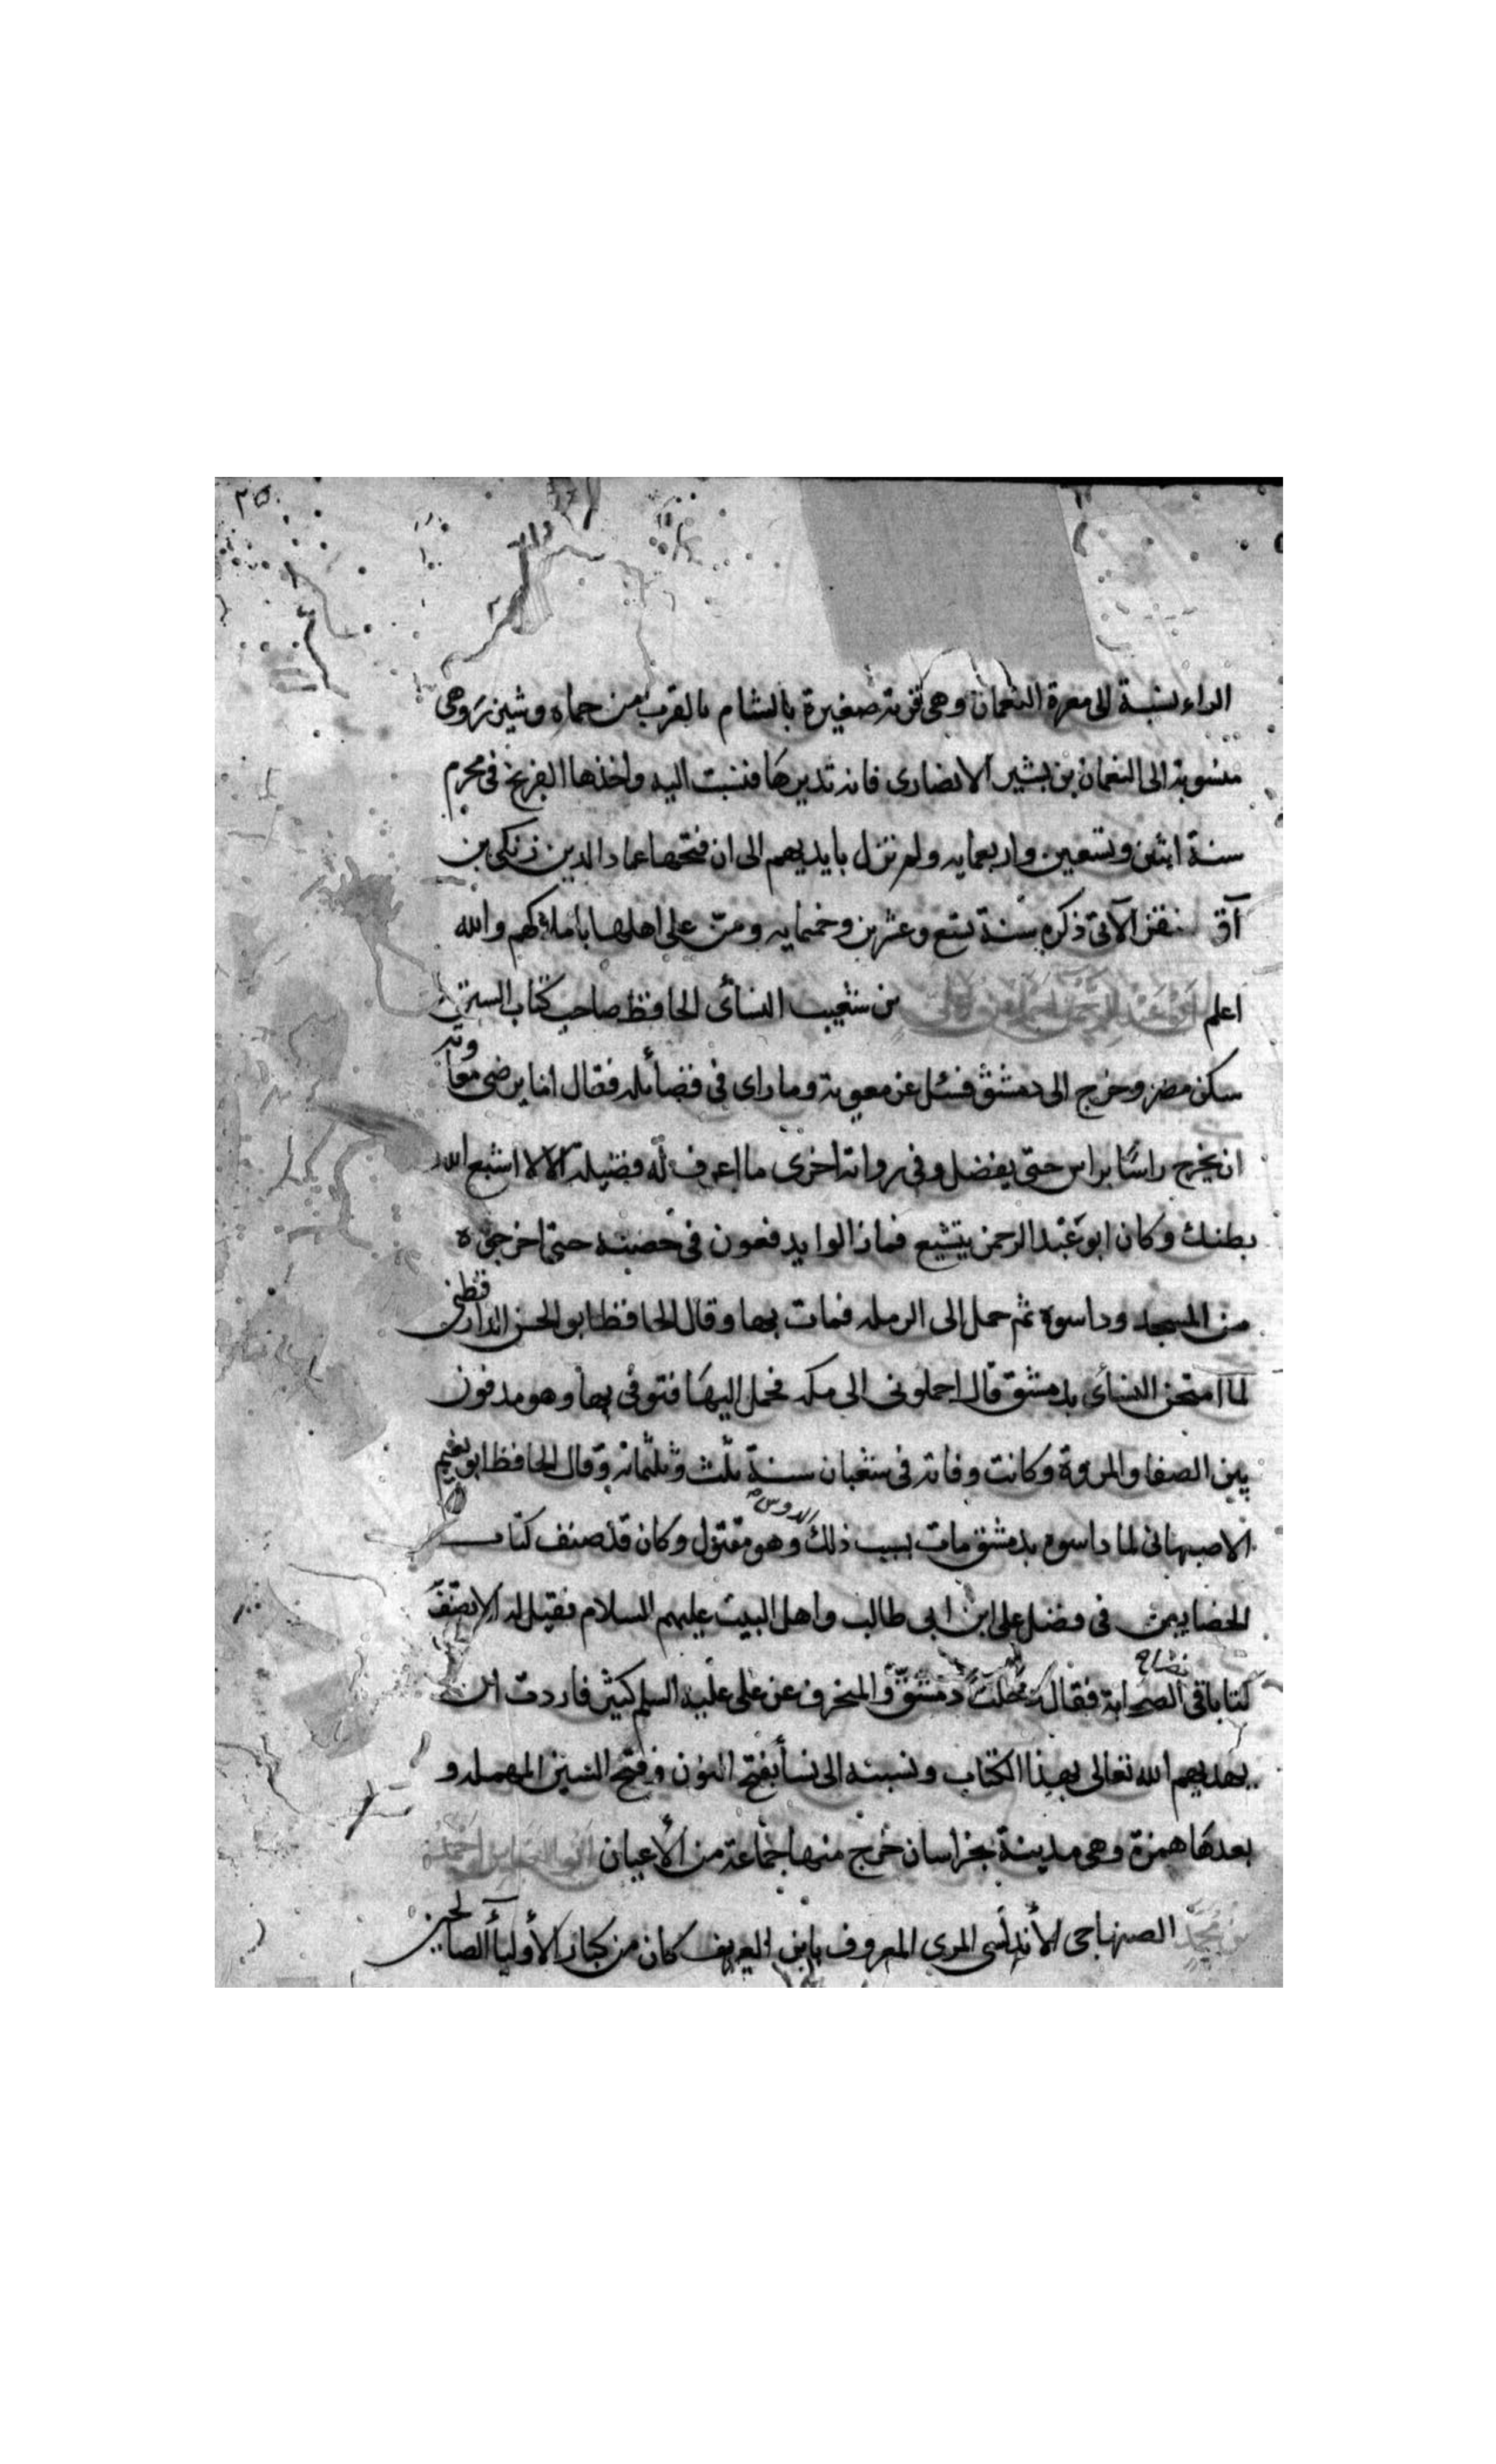 ٢٥
الراء نسبة الى معرة النعمان وهى قرية صغيرة بالشام بالقرب من حماه وشيزر وهى
منسوبة الى النعمان بن بشير الانصارى فانه تديرها فنسبت اليه واخذها الفرنج فى محرم
سنة اثنين وتسعين واربعمايه ولم تزل بايديهم الى ان فتحها عماد الدين زنكى بن
آق سنقر الآتى ذكره سنة تسع وعشرين وخمسمايه ومن على اهلها باملاكهم والله
اعلم ابو عبد الرحمن احمد بن على بن شعيب النسائى الحافظ صاحب كتاب السنن
سكن مصر وخرج الى دمشق فسئل عن معوية وما راى فى فضائله فقال اما يرضى معاوية
ان يخرج راسًا براس حتى يفضل وفى رواية اخرى ما اعرف له فضيلة الا لا اشبع الله
بطنك وكان ابو عبد الرحمن يتشيع فما زالوا يدفعون فى حضنه حتى اخرجوه
من المسجد وداسوه ثم حمل الى الرمله فمات بها وقال الحافظ ابو الحسن الدارقطنى
لما امتحن النسائى بدمشق قال احملونى الى مكه فحمل اليها فتوفى بها وهو مدفون
بين الصفا والمروة وكانت وفاته فى شعبان سنة ثلث وثلثمائة وقال الحافظ ابو نعيم
الاصبهانى لما داسوه بدمشق مات بسبب ذلك الدوس وهو مقتول وكان قد صنف كتاب
الخصايص فى فضل على ابن ابى طالب واهل البيت عليهم السلام فقيل له الا تصنف
كتابا فى فضائل الصحابة فقال دخلت دمشق والمنحرف عن على عليه السلم كثير فاردت ان
يهديهم الله تعالى بهذا الكتاب ونسبته الى نسأ بفتح النون وفتح السين المهمله و
بعدها همزة وهى مدينة بخراسان خرج منها جماعة من الأعيان ابو العباس احمد
بن محمد الصنهاجى الأندلسى المرى المعروف بابن العريف كان من كبار الأوليآ الصالحين